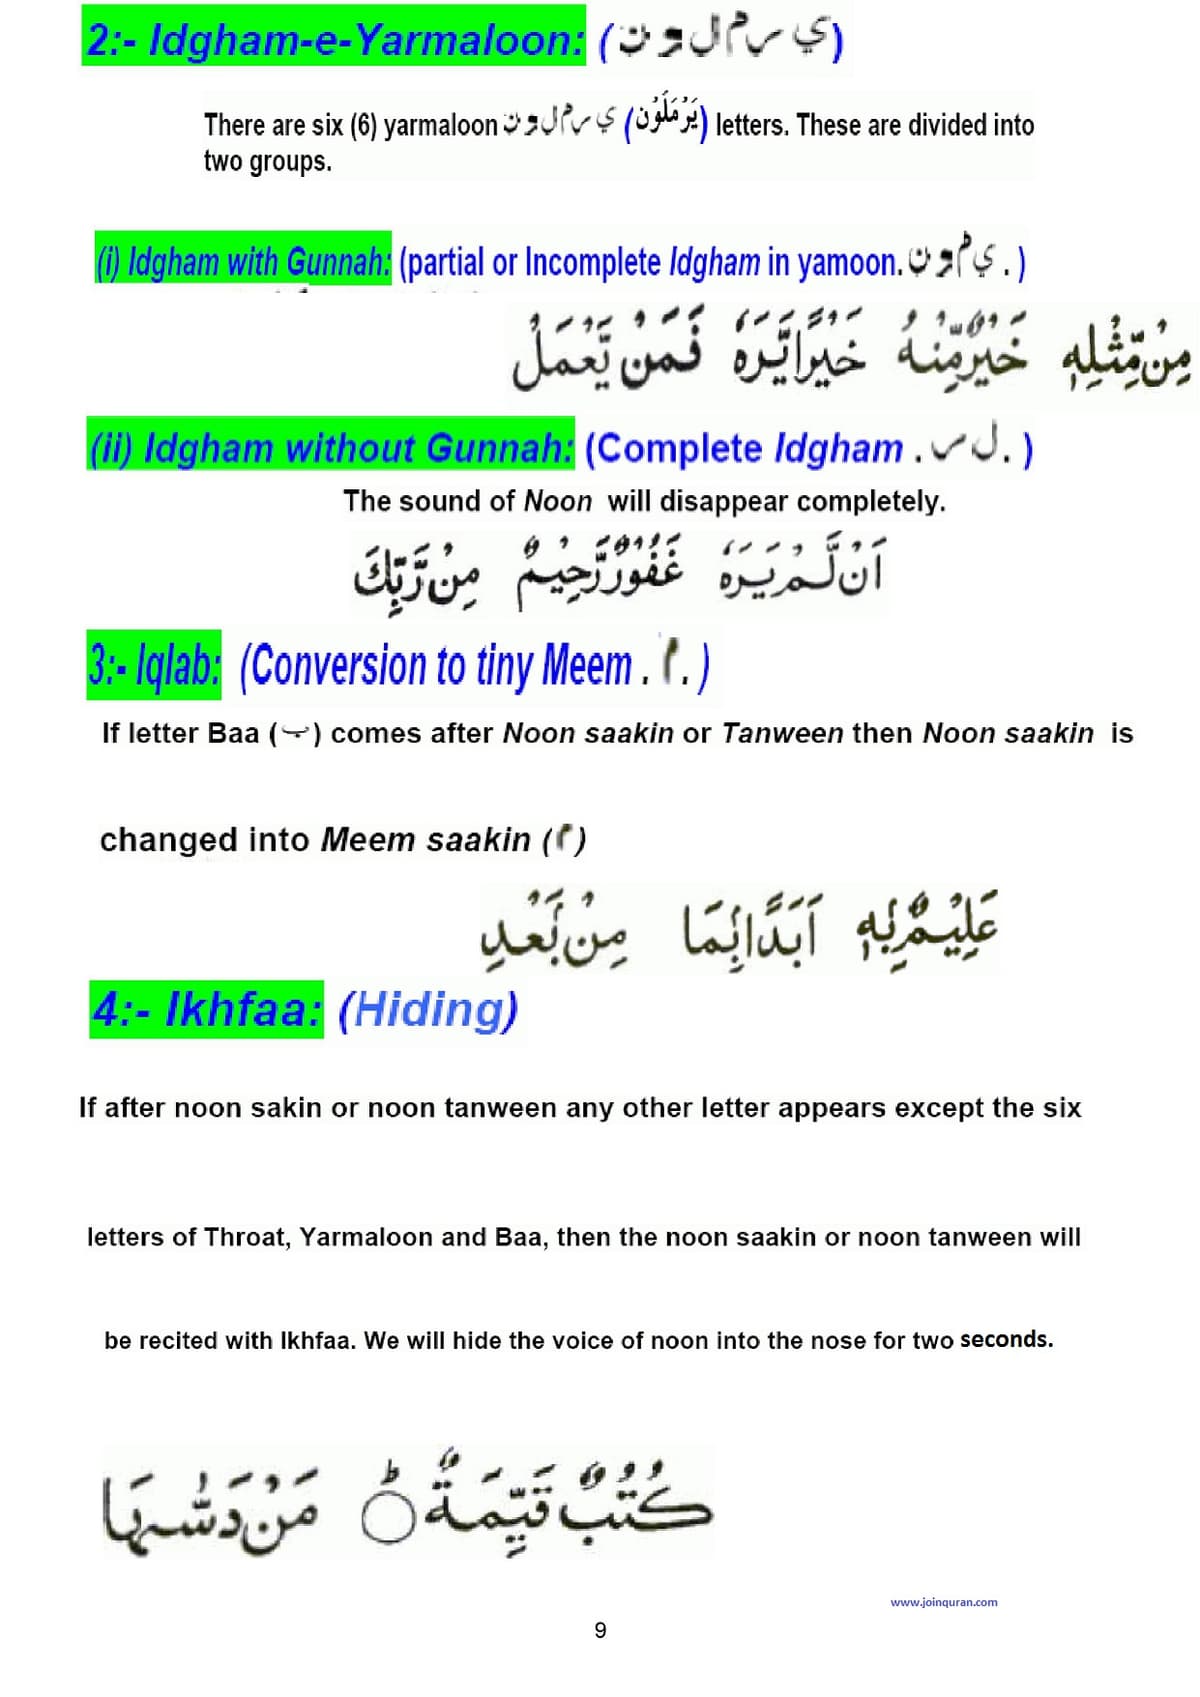 2:- Idgham-e-Yarmaloon: (ي ر م ل و ن)
There are six (6) yarmaloon ي ر م ل و ن (يَرْمَلُوْن) letters. These are divided into
two groups.
(i) Idgham with Gunnah: (partial or Incomplete Idgham in yamoon. ي م و ن . )
مِنْ مِّثْلِهٖ خَيْرٌ مِّنْهُ خَيْرًا يَّرَهٗ فَمَنْ يَّعْمَلْ
(ii) Idgham without Gunnah: (Complete Idgham . ل ر . )
The sound of Noon will disappear completely.
اَنْ لَّمْ يَرَهٗ غَفُوْرٌ رَّحِيْمٌ مِنْ رَّبِّكَ
3:- Iqlab: (Conversion to tiny Meem . م . )
If letter Baa (ب) comes after Noon saakin or Tanween then Noon saakin is
changed into Meem saakin (م)
عَلِيْمٌۢ بِهٖ اَبَدًۢا بِمَا مِنْۢ بَعْدِ
4:- Ikhfaa: (Hiding)
If after noon sakin or noon tanween any other letter appears except the six
letters of Throat, Yarmaloon and Baa, then the noon saakin or noon tanween will
be recited with Ikhfaa. We will hide the voice of noon into the nose for two seconds.
كُتُبٌ قَيِّمَةٌ ؕ مَنْ دَسّٰىهَا
www.joinquran.com
9